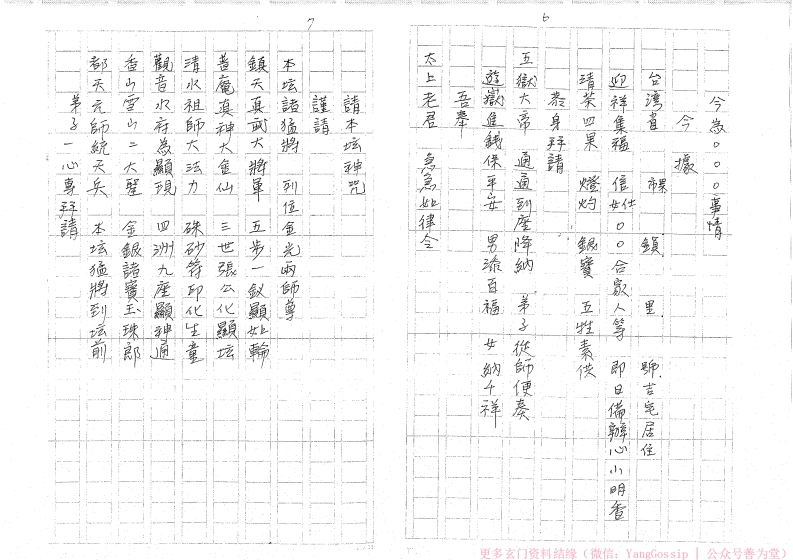 6
今為○○○事情
今據
台灣省 縣市 鎮 里 號吉宅居住
迎祥集福 信士女 ○○合家人等 即日備辦心小明香
清茶四果 燈灼 銀寶 五牲素供
恭身拜請
五獄大帝 通通到座降納 弟子從師便奏
遊獄進錢保平安 男添百福 女納千祥
吾舉
太上老君 急急如律令
7
請本坛神咒
謹請
本坛諸猛將 列位金光兩師尊
鎮天真武大將軍 五步一釵顯如輪
普庵真神大金仙 三世張公化顯坛
清水祖師大法力 硃砂符印化生童
觀音水府為顯現 四洲九座顯神通
香山雪山二大聖 金銀諸寶玉珠郎
都天元師統天兵 本坛猛將到坛前
弟子一心專拜請
更多玄门资料结缘（微信：YangGossip | 公众号善为堂）